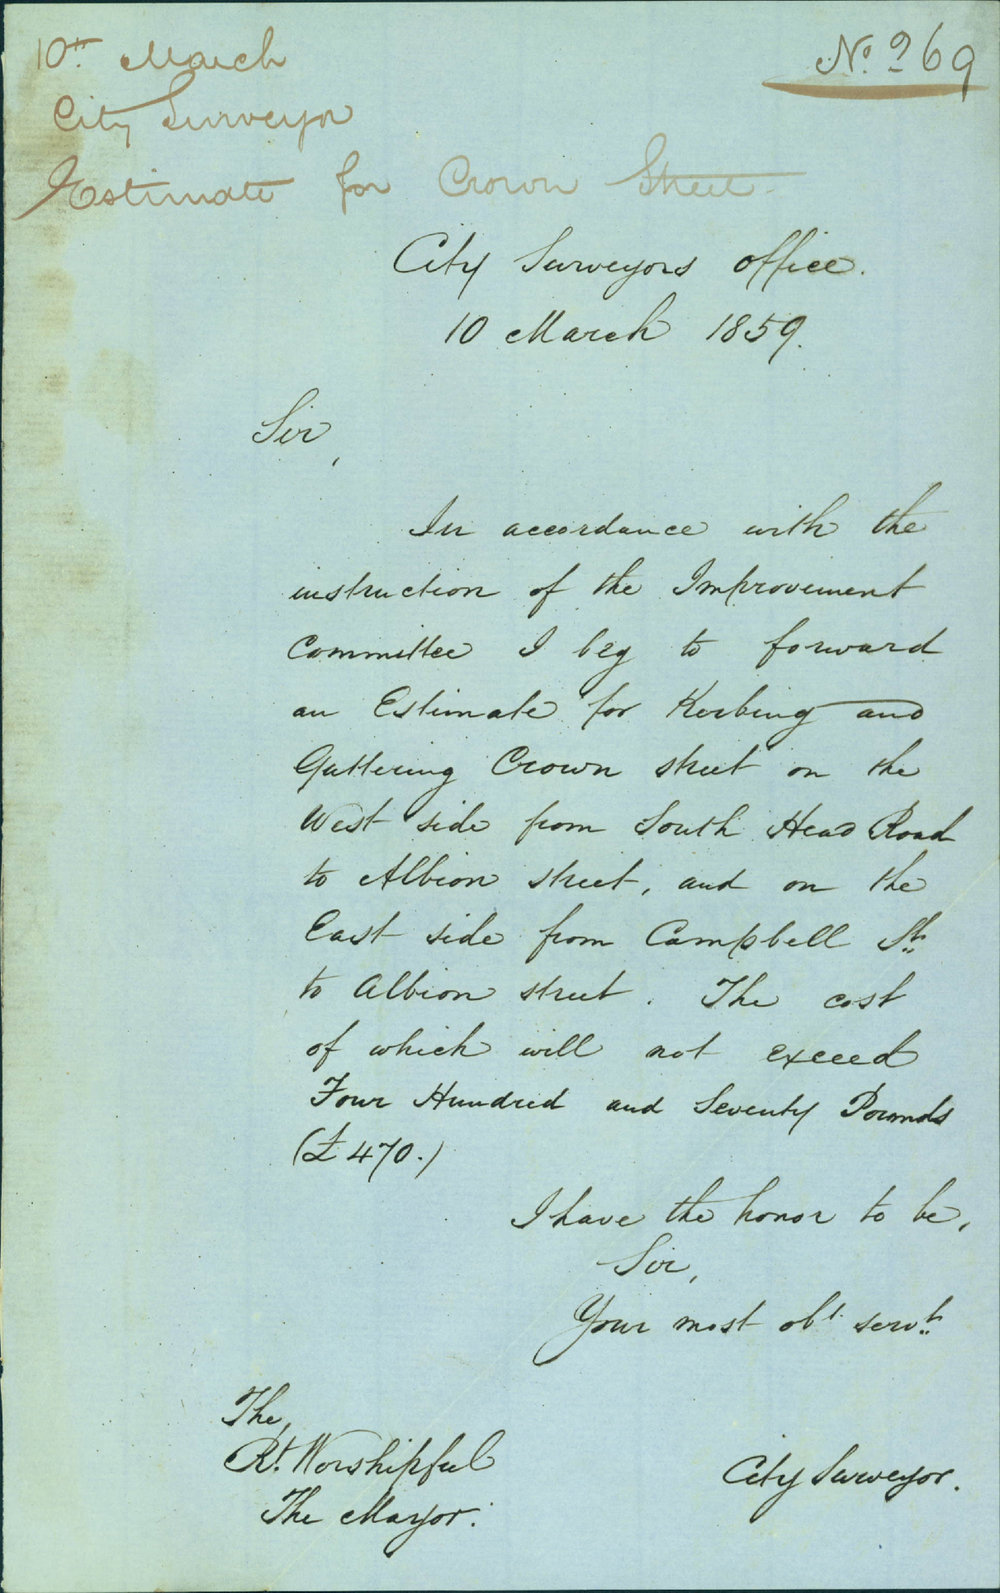 10th March
No 269
City Surveyor
Estimate for Crown Street
City Surveyors office.
10 March 1859.
Sir,
In accordance with the
instruction of the Improvement
Committee I beg to forward
an Estimate for Kerbing and
Guttering Crown street on the
West side from South Head Road
to Albion street, and on the
East side from Campbell St.
to Albion street. The cost
of which will not exceed
Four Hundred and Seventy Pounds
(£470.)
I have the honor to be,
Sir,
Your most obt servt.
The,
Rt. Worshipful
The Mayor.
City Surveyor.